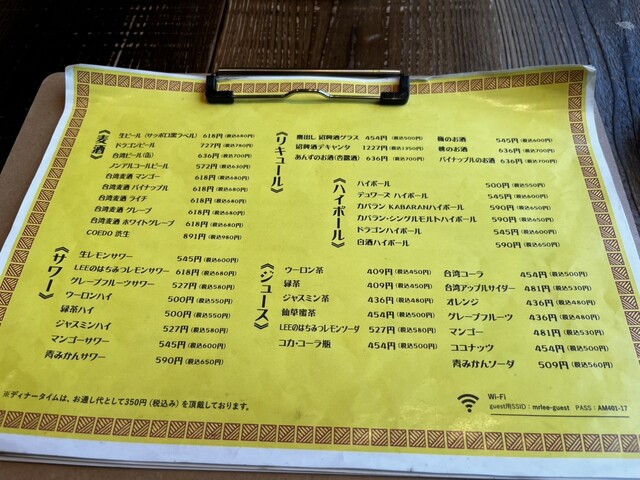 《麦酒》
生ビール (サッポロ黒ラベル) 618円 (税込680円)
ドラゴンビール 727円 (税込780円)
台湾ビール(缶) 636円 (税込700円)
ノンアルコールビール 572円 (税込630円)
台湾麦酒 マンゴー 618円 (税込680円)
台湾麦酒 パイナップル 618円 (税込680円)
台湾麦酒 ライチ 618円 (税込680円)
台湾麦酒 グレープ 618円 (税込680円)
台湾麦酒 ホワイトグレープ 618円 (税込680円)
COEDO 毬生 891円 (税込980円)
《サワー》
生レモンサワー 545円 (税込600円)
LEEのはちみつレモンサワー 618円 (税込680円)
グレープフルーツサワー 527円 (税込580円)
ウーロンハイ 500円 (税込550円)
緑茶ハイ 500円 (税込550円)
ジャスミンハイ 527円 (税込580円)
マンゴーサワー 545円 (税込600円)
青みかんサワー 590円 (税込650円)
《リキュール》
甕出し 紹興酒グラス 454円 (税込500円)
紹興酒デキャンタ 1227円 (税込1350円)
あんずのお酒 (杏露酒) 636円 (税込700円)
梅のお酒 545円 (税込600円)
桃のお酒 636円 (税込700円)
パイナップルのお酒 636円 (税込700円)
《ハイボール》
ハイボール 500円 (税込550円)
デュワーズ ハイボール 545円 (税込600円)
カバラン KABARANハイボール 590円 (税込650円)
カバラン・シングルモルトハイボール 590円 (税込650円)
ドラゴンハイボール 545円 (税込600円)
白酒ハイボール 590円 (税込650円)
《ジュース》
ウーロン茶 409円 (税込450円)
緑茶 409円 (税込450円)
ジャスミン茶 436円 (税込480円)
仙草蜜茶 454円 (税込500円)
LEEのはちみつレモンソーダ 527円 (税込580円)
コカ・コーラ瓶 454円 (税込500円)
台湾コーラ 454円 (税込500円)
台湾アップルサイダー 481円 (税込530円)
オレンジ 436円 (税込480円)
グレープフルーツ 436円 (税込480円)
マンゴー 481円 (税込530円)
ココナッツ 454円 (税込500円)
青みかんソーダ 509円 (税込560円)
※ディナータイムは、お通し代として350円 (税込み) を頂戴しております。
Wi-Fi
guest用SSID : mrlee-guest PASS : AM401-17